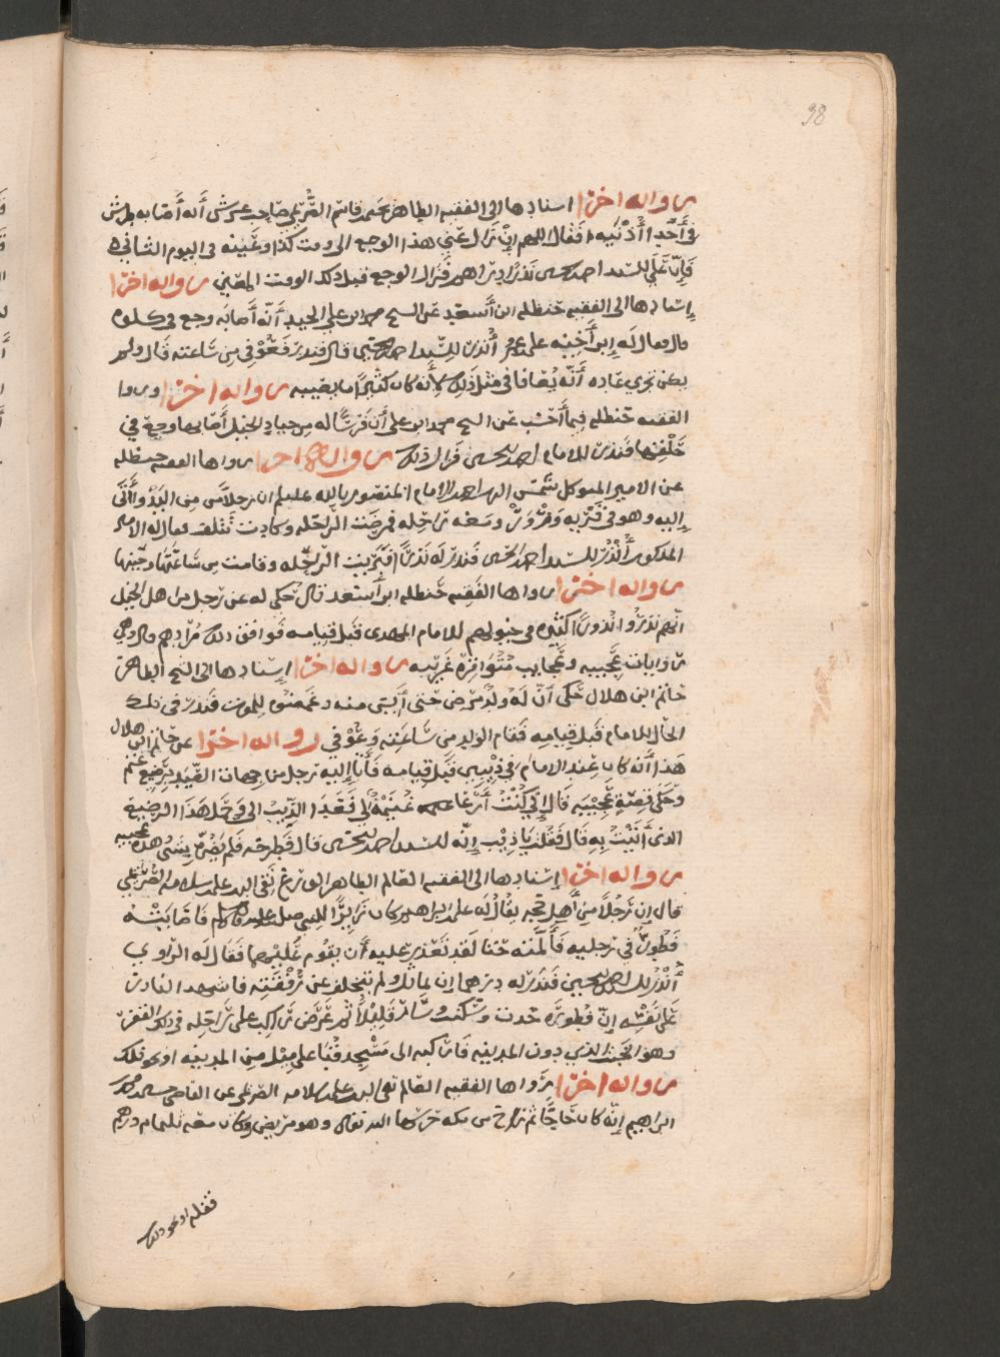 98
رواية اخرى اسنادها الى الفقيه الطاهر محمد قاسم الضريلي صاحب عرش أنه أصابه طرش
في أحد اأذنيه فقال اللهم إن زال عني هذا الوجع الى وقت كذا وعينه في اليوم الثاني ه
فإن علي للسيد احمد يحيى نذرا دراهم فزال الوجع قبل ذلك الوقت المعين رواية اخرى
إسنادها الى الفقيه حنظله ابن أسعد عن الشيخ محمد ابن علي الجيد أنه أصابه وجع في
قال فقال له إبن أخيه علي أنذر للسيد احمد يحيى قال فنذر فعوفي من ساعته قال ولم
يكن تجري عاده أنه يعافا في مثل ذلك لأنه كان كثيرا ما يصيبه رواية اخرى وروا
الفقيه حنظله فيما أحسب عن الشيخ محمد ابن علي أن فرسا له من جياد الخيل أصابها وجع في
حلقها فنذر للامام احمد يحيى فزال ذلك رواية اخرى رواها الفقيه حنظله
عن الامير المتوكل شمس الدين احمد الامام المنصور بالله عليلم ان رجلا من البدو أتى
إليه وهو في قريه وقرون ومعه راحله فمرضت الراحله وكادت تتلف فقال له الامير
المذكور أنذر للسيد احمد يحيى فنذر له نذرا فبريت الراحله وقامت من ساعتها وحينها
رواية اخرى رواها الفقيه حنظله ابن أسعد قال حكى له عن رجل من اهل الجبل
انهم نذروا نذورا كثيره في حبولهم للامام المهدي قبل قيامه فوافق ذلك مرادهم قال وهي
روايات عجيبه وعجايب متواتره غريبه رواية اخرى إسنادها الى الشيخ الطاهر
حاتم ابن هلال حكى أن له ولد مرض حتى أيس منه وغمضوه للموت فنذر في تلك
الحال للامام قبل قيامه فقام الولد من ساعته وعوفي رواية اخرى عن حاتم ابن هلال
هذا أنه كان عند الامام في ذيبين قبل قيامه فأتا إليه رجل من جهات الصيد برضيع غنم
وحكى قصة عجيبه قال إني كنت أرعا غنيمة لي فعدا الذيب الى وحمل هذا الرضيع
الذي أتيت به قال فقلت ياذيب إنه للسيد احمد يحيى قال فطرحه فلم يضره بشي وهذه عجيبه
رواية اخرى إسنادها الى الفقيه العالم الطاهر الورع تقي الدين علي سلامه الضريلي
قال إن رجلا من أهل حجه يقال له علي ابراهيم كان زايرا للنبي صلى الله عليه وآله وسلم فاصابته
قطور في رجليه فألمته حتا لقد تعذر عليه أن يقوم عليهما فقال له الراوي
أنذر للسيد احمد يحيى فنذر له درهما إن عافاه ولم يتخلف عن رفقته فاشهد النادر
على نفسه إن قطوره خدت وسكنت وسار قليلا ثم عرض راكب على راحله في ذلك القفر
وهو الذي دون المدينه فاركبه الى مسجد قبا على ميل من المدينه او نحو ذلك
رواية اخرى رواها الفقيه العالم تقي الدين علي سلامه الضريلي عن القاضي محمد
ابراهيم إنه كان حاجا ثم راح من مكه حرسها الله تعالى وهو مريض وكان معه ثلثمايه درهم
قفله او نحو ذلك